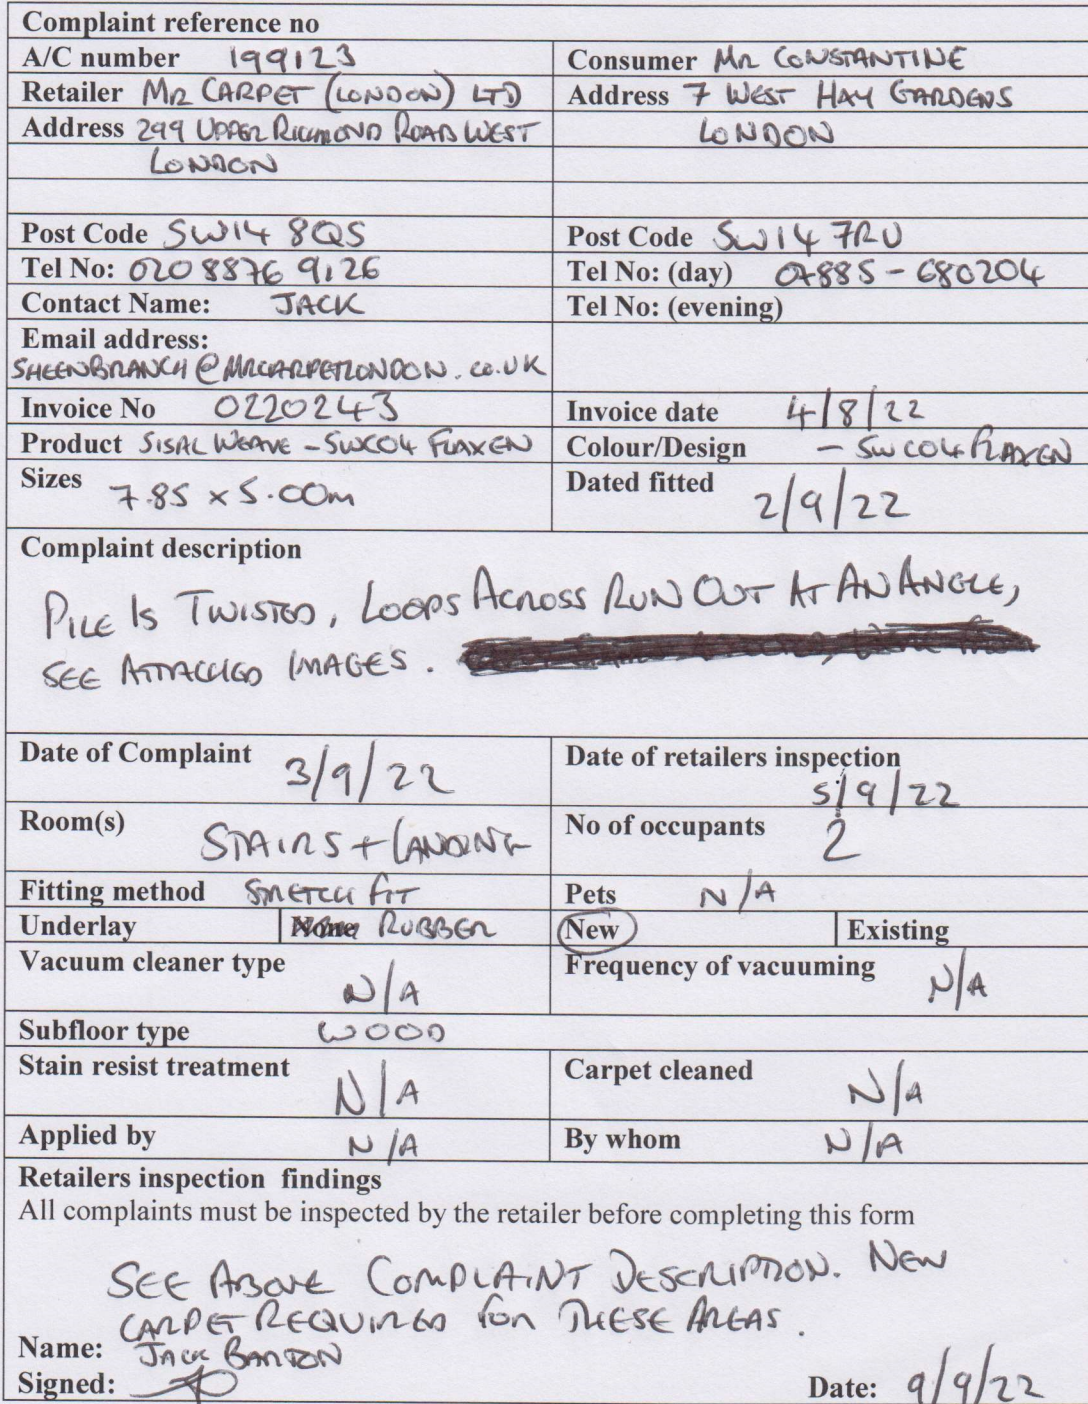 Complaint reference no
A/C number 199123
Consumer Mr CONSTANTINE
Retailer Mr CARPET (LONDON) LTD
Address 7 WEST HAY GARDENS
Address 299 UPPER RICHMOND ROAD WEST
LONDON
LONDON
Post Code SW14 8QS
Post Code SW14 7RU
Tel No: 0208876 9126
Tel No: (day) 07885-680204
Contact Name: JACK
Tel No: (evening)
Email address:
SHEENBRANCH@MRCARPETLONDON.co.UK
Invoice No 0220243
Invoice date 4/8/22
Product SISAL WEAVE - SWC04 FLAXEN
Colour/Design - SWC04 FLAXEN
Sizes 7.85 x 5.00m
Dated fitted 2/9/22
Complaint description
PILE IS TWISTED, LOOPS ACROSS RUN OUT AT AN ANGLE,
SEE ATTACHED IMAGES.
Date of Complaint 3/9/22
Date of retailers inspection
5/9/22
Room(s) STAIRS + LANDING
No of occupants 2
Fitting method STRETCH FIT
Pets N/A
Underlay None RUBBER
New Existing
Vacuum cleaner type N/A
Frequency of vacuuming N/A
Subfloor type WOOD
Stain resist treatment N/A
Carpet cleaned N/A
Applied by N/A
By whom N/A
Retailers inspection findings
All complaints must be inspected by the retailer before completing this form
SEE ABOVE COMPLAINT DESCRIPTION. NEW
CARPET REQUIRED FOR THESE AREAS.
Name: JACK BARTON
Signed:
Date: 9/9/22